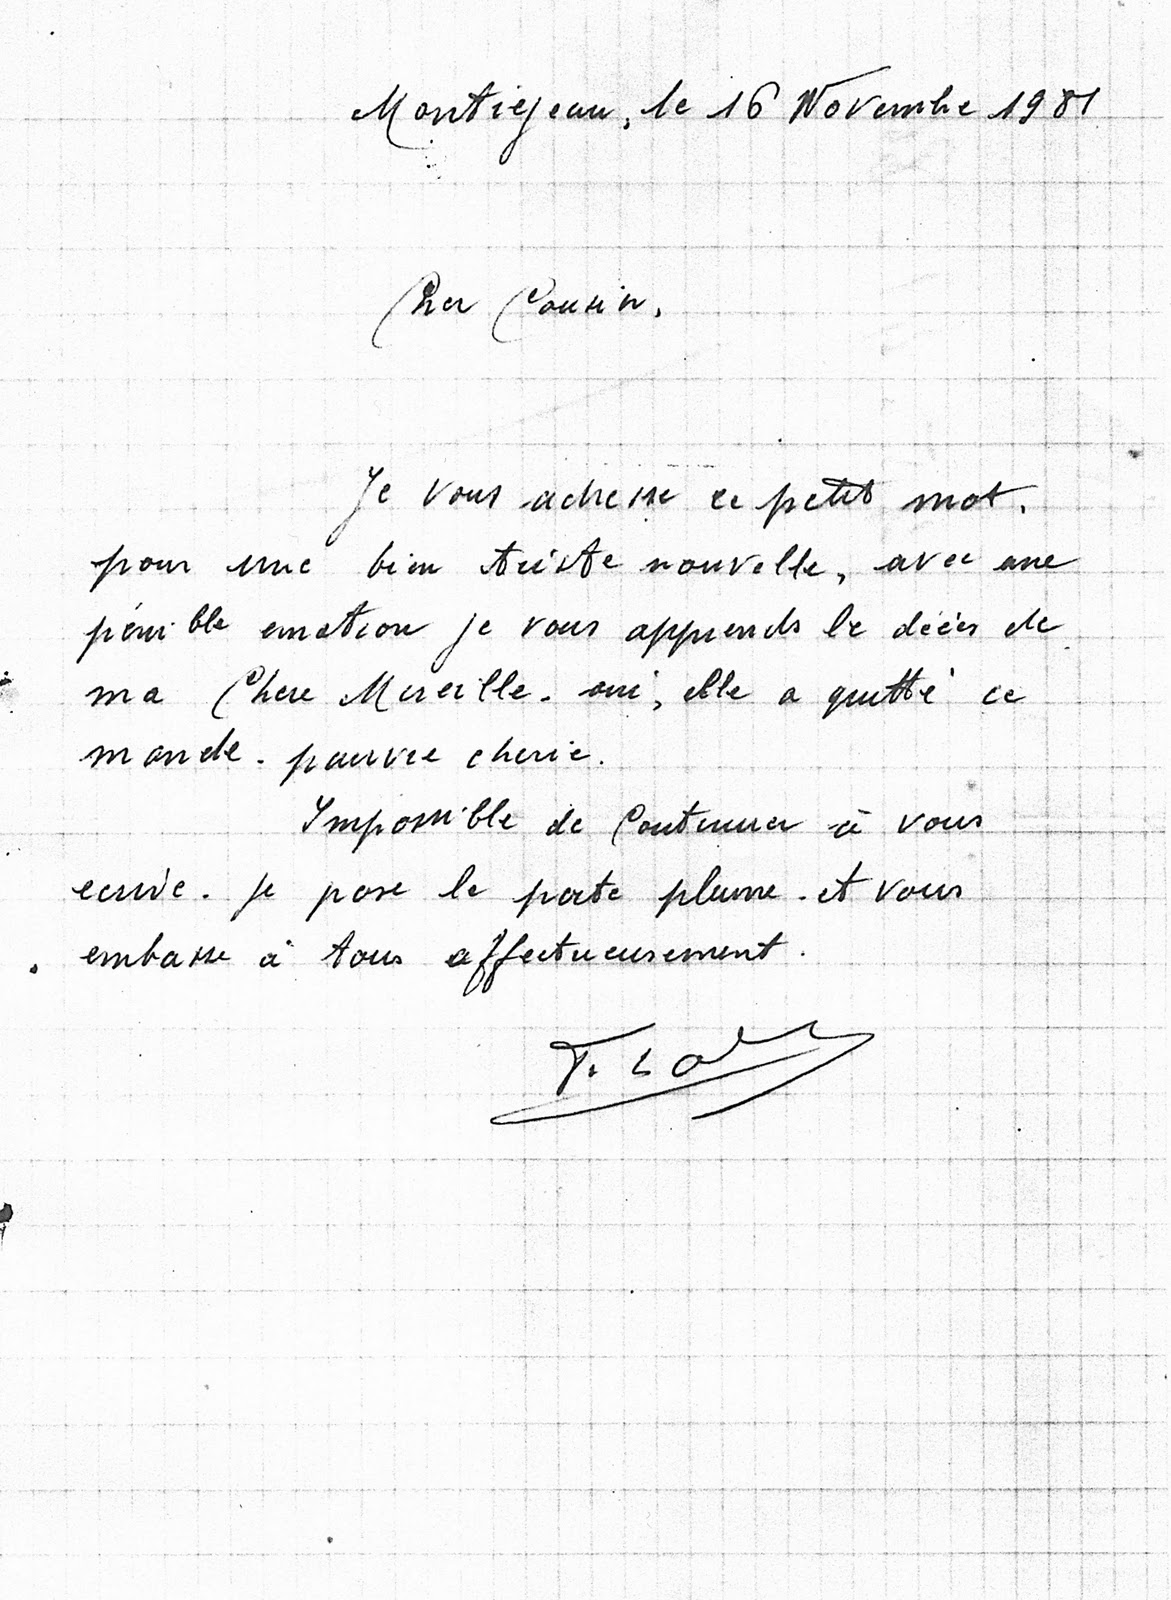 Montigeau, le 16 Novembre 1981
Cher Cousin,
Je vous adresse ce petit mot,
pour une bien triste nouvelle, avec une
pénible emotion je vous apprends le décès de
ma Chere Mireille. oui, elle a quitté ce
monde. pauvre cherie.
Impossible de Continuer à vous
ecrire. je pose le porte plume. et vous
embasse à tous affectueusement.